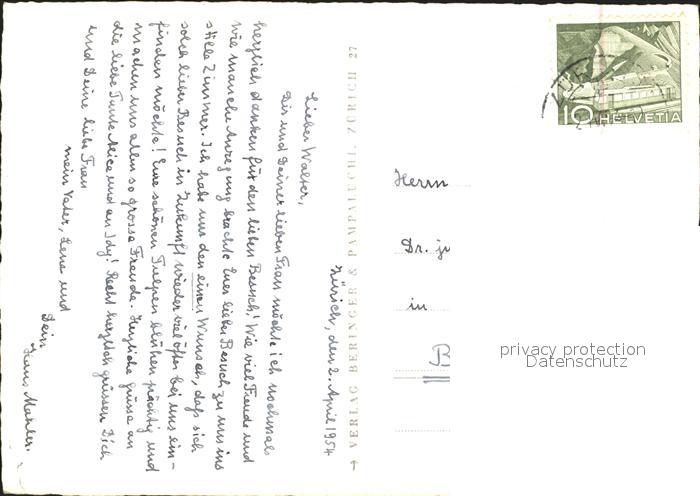 Zürich, den 2. April 1954
Lieber Walter,
Dir und Deiner lieben Frau möchte ich nochmals
herzlich danken für den lieben Besuch! Wie viel Freude und
wie manche Anregung brachte Euer lieber Besuch zu uns ins
stille Zimmer. Ich habe nur den einen Wunsch, dass sich
solch lieber Besuch in Zukunft wieder viel öfter bei uns ein-
finden möchte! Eure schönen Tulpen blühen prächtig und
machen uns allen so grosse Freude. Herzliche Grüsse an
die liebe Tante Alice und an Idy! Recht herzlich grüssen Dich
und Deine liebe Frau
mein Vater, Lena und
Dein
Hans Mahler.
VERLAG BERINGER & PAMPALUCHI, ZÜRICH 27
10 HELVETIA
Herrn
Dr. ju
in
B
privacy protection
Datenschutz